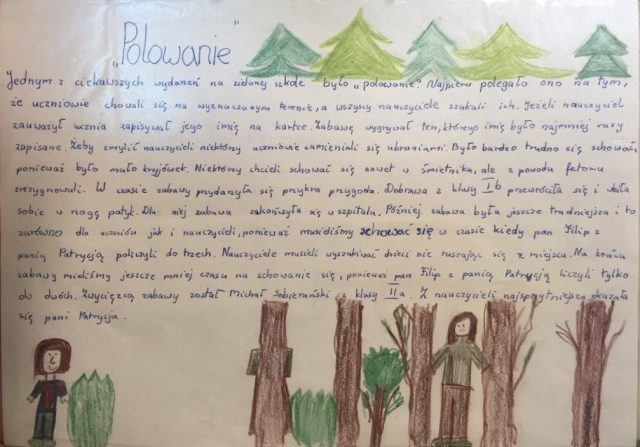 „Polowanie"
Jednym z ciekawszych wydarzeń na zielonej szkole było „polowanie". Najpierw polegało ono na tym,
że uczniowie chowali się na wyznaczonym terenie, a wszyscy nauczyciele szukali ich. Jeżeli nauczyciel
zauważył ucznia zapisywał jego imię na kartce. Zabawę wygrywał ten, którego imię było najmniej razy
zapisane. Żeby zmylić nauczycieli niektórzy uczniowie zamieniali się ubraniami. Było bardzo trudno się schować,
ponieważ było mało kryjówek. Niektórzy chcieli schować się nawet w śmietniku, ale z powodu fetoru
zrezygnowali. W czasie zabawy przydarzyła się przykra przygoda. Dobrawa z klasy I b przewróciła się i wbiła
sobie w nogę patyk. Dla niej zabawa zakończyła się w szpitalu. Później zabawa była jeszcze trudniejsza i to
zarówno dla uczniów jak i nauczycieli, ponieważ musieliśmy schować się w czasie kiedy pan Filip z
panią Patrycją policzyli do trzech. Nauczyciele musieli wyszukiwać dzieci nie ruszając się z miejsca. Na końcu
zabawy mieliśmy jeszcze mniej czasu na schowanie się, ponieważ pan Filip z panią Patrycją liczyli tylko
do dwóch. Zwycięzcą zabawy został Michał Sobierański z klasy II a. Z nauczycieli najsprytniejsza okazała
się pani Patrycja.